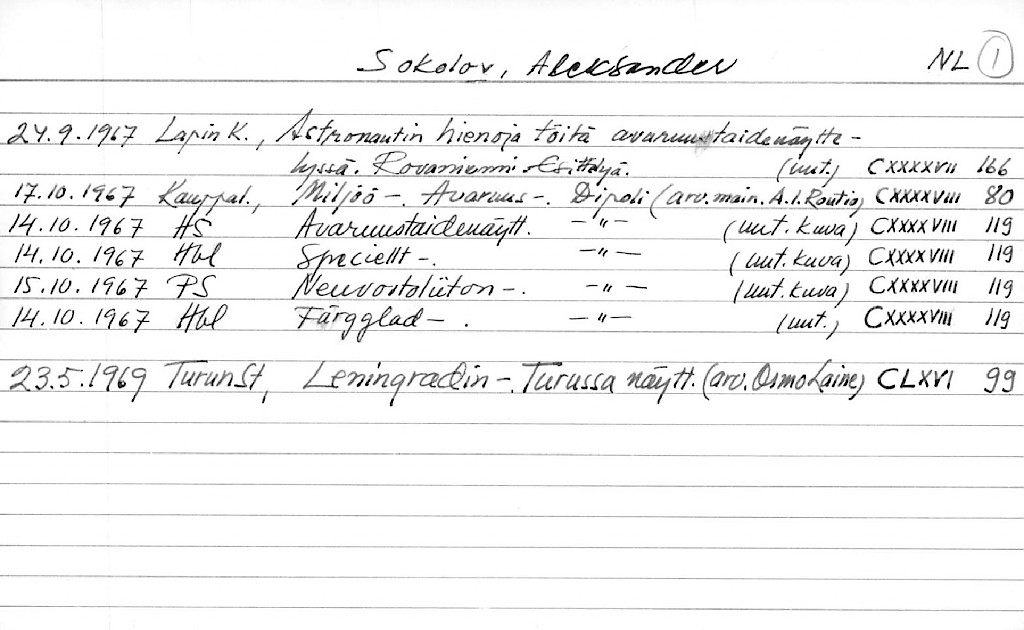 Sokolov, Aleksander NL 1
24.9.1967 Lapin K., Astronautin hienoja töitä avaruustaidenäytte-
lyssä. Rovaniemi. Esittelyä. (uut.) CXXXXVII 166
17.10.1967 Kauppal., Miljöö-. Avaruus-. Dipoli (arv.main. A.I.Routio) CXXXXVIII 80
14.10.1967 HS Avaruustaidenäytt. -"- (uut.kuva) CXXXXVIII 119
14.10.1967 Hbl Speciellt-. -"- (uut.kuva) CXXXXVIII 119
15.10.1967 PS Neuvostoliiton-. -"- (uut.kuva) CXXXXVIII 119
14.10.1967 Hbl Färgglad-. -"- (uut.) CXXXXVIII 119
23.5.1969 TurunSt, Leningradin-. Turussa näytt. (arv. Osmo Laine) CLXVI 99